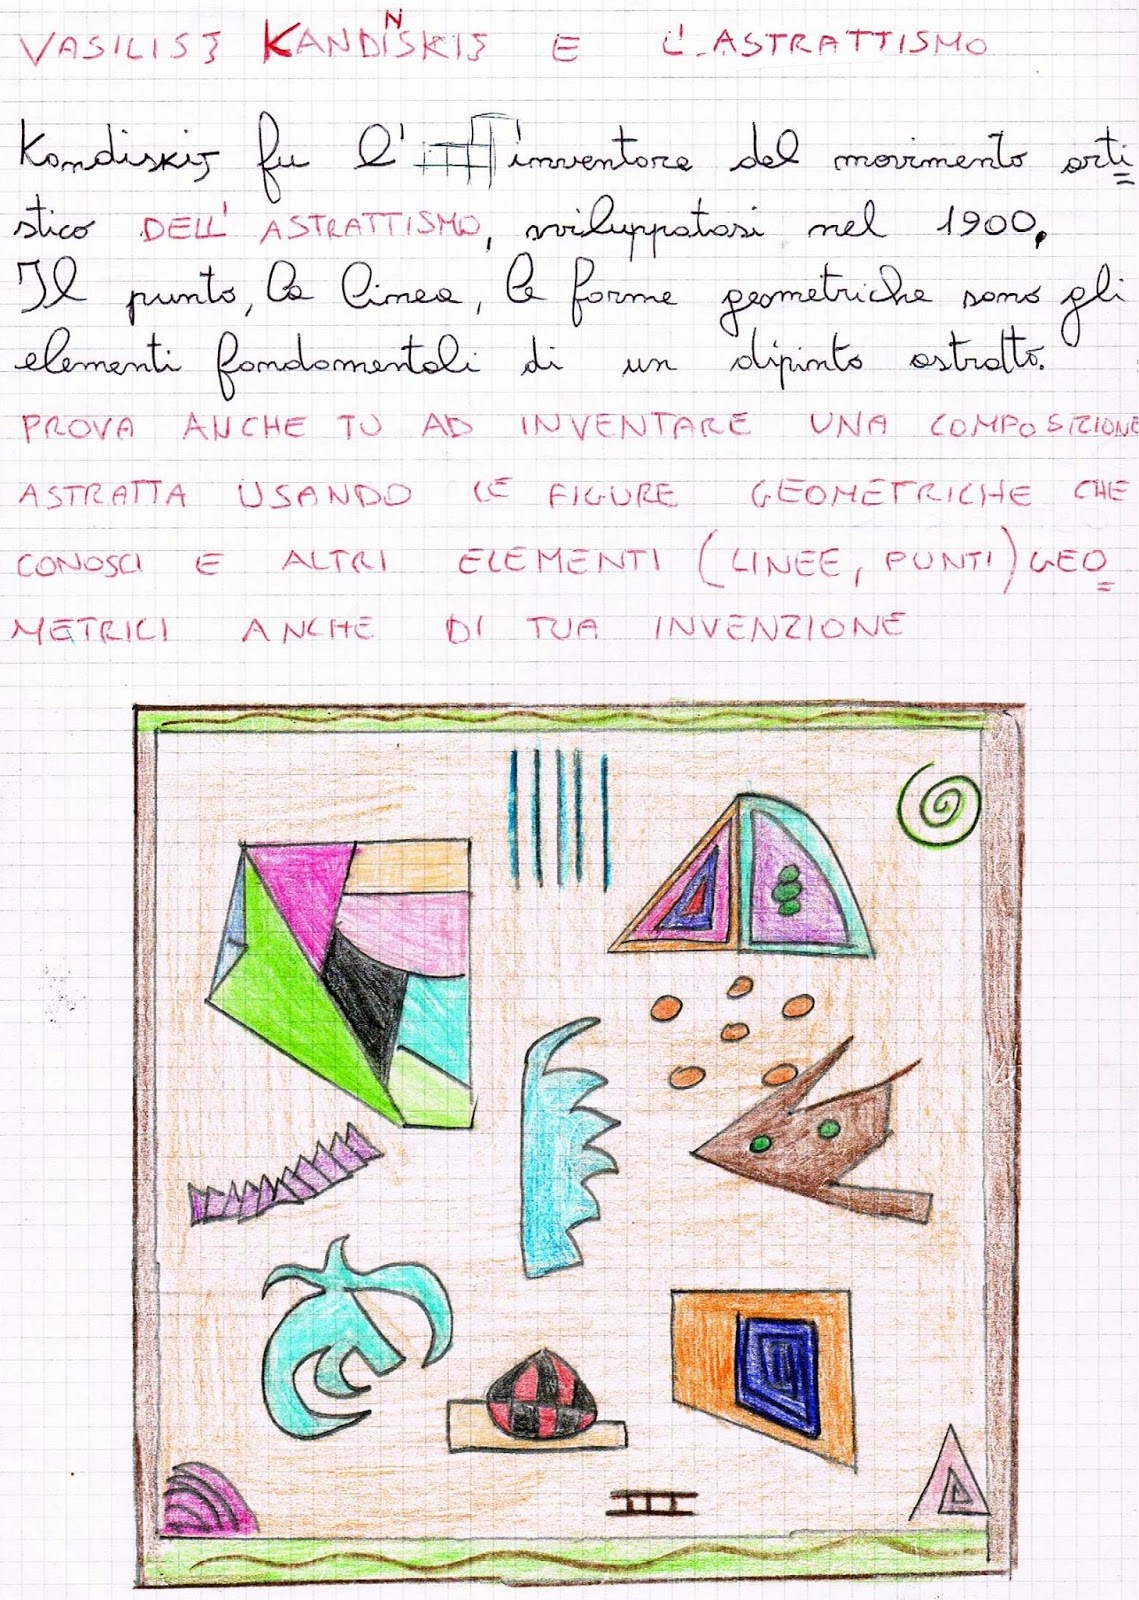 VASILISJ KANDINSKIJ E L'ASTRATTISMO
Kandiskij fu l'inventore del movimento arti
stico DELL'ASTRATTISMO, sviluppatosi nel 1900.
Il punto, la linea, le forme geometriche sono gli
elementi fondamentali di un dipinto astratto.
PROVA ANCHE TU AD INVENTARE UNA COMPOSIZIONE
ASTRATTA USANDO LE FIGURE GEOMETRICHE CHE
CONOSCI E ALTRI ELEMENTI (LINEE, PUNTI) GEO
METRICI ANCHE DI TUA INVENZIONE